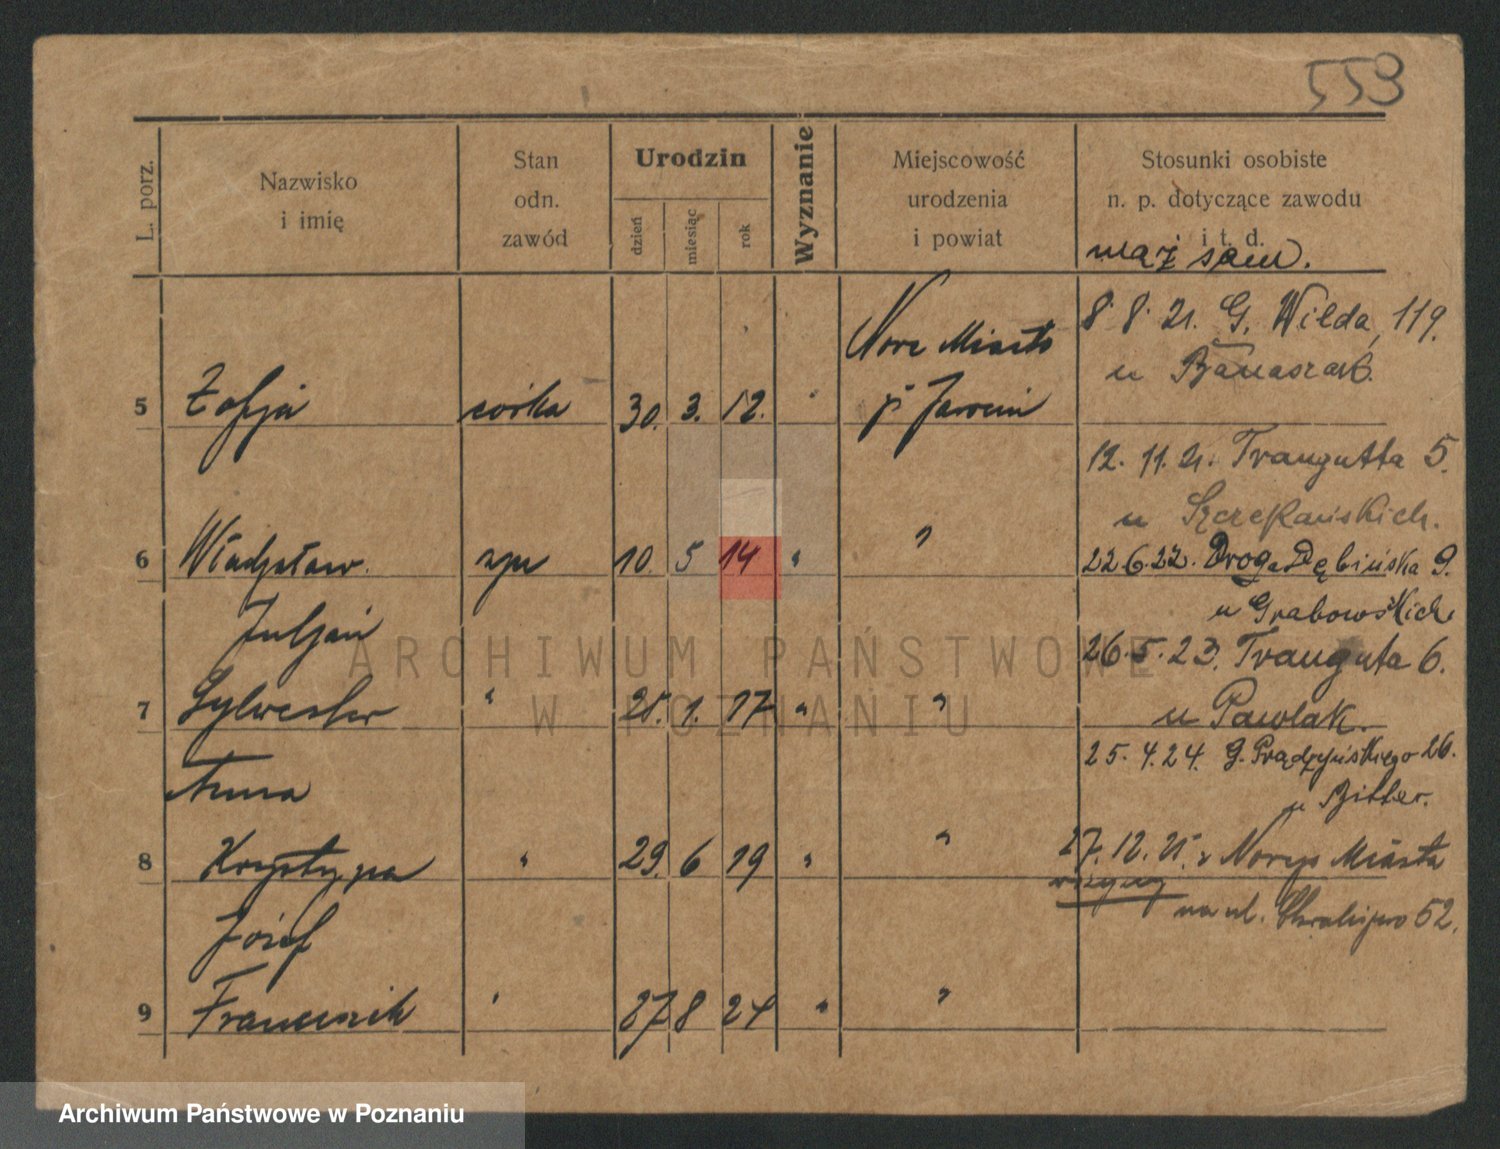 553
L. porz.
Nazwisko
i imię
Stan
odn.
zawód
Urodzin
dzień
miesiąc
rok
Wyznanie
Miejscowość
urodzenia
i powiat
Stosunki osobiste
n. p. dotyczące zawodu
i t. d.
mąż sam.
8. 8. 21. G. Wilda, 119.
u Banaszak.
Nowe Miasto
5 Zofja córka 30. 3. 12. " p. Jarocin
12. 11. 21. Traugutta 5.
u Szczekańskich.
6 Władysław. syn 10. 5 14 " "
22 6.22. Droga Dębińska 9.
u Grabowskich
Juljan
26.5.23. Trauguta 6.
7 Sylwester " 1. 17 " "
u Pawlak.
25. 4. 24. G. Prądzyńskiego 26.
u Bitter.
Anna
27. 12. 25. z Nowego Miasta
8 Krystyna " 29. 6 19 " "
na ul. 52.
Józef
9 Franciszek " 27 8 24 " "
ARCHIWUM PAŃSTWOWE
W POZNANIU
Archiwum Państwowe w Poznaniu